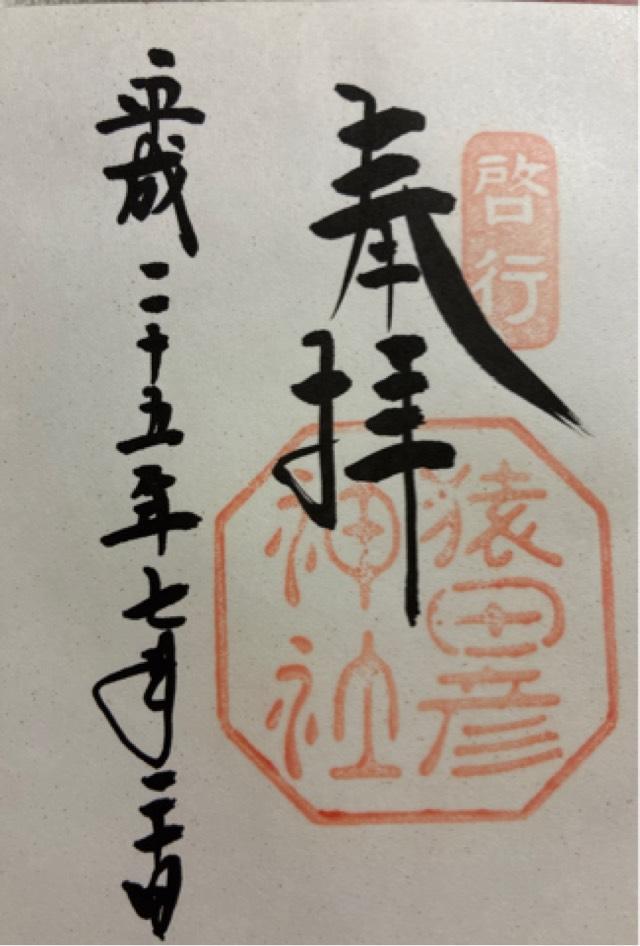 啓行
奉拝
猿田彦
神社
平成二十五年七月二十日